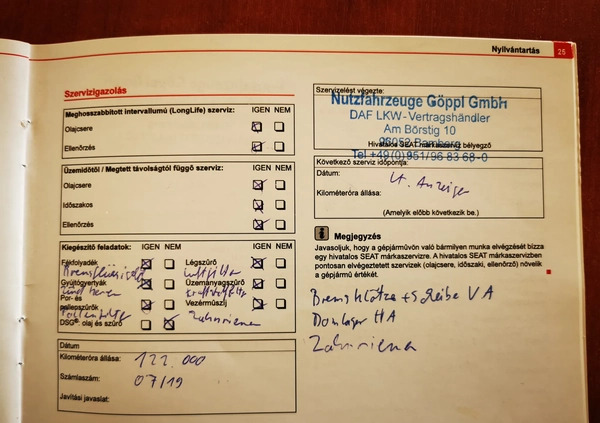 Nyilvántartás 25
Szervizigazolás
Meghosszabbított intervallumú (LongLife) szerviz: IGEN NEM
Olajcsere
Ellenőrzés
Üzemidőtől / Megtett távolságtól függő szerviz: IGEN NEM
Olajcsere
Időszakos
Ellenőrzés
Kiegészítő feladatok: IGEN NEM IGEN NEM
Fékfolyadék Légszűrő
Bremsflüssigkeit Luftfilter
Gyújtógyertyák Üzemanyagszűrő
Zündkerzen Kraftstofffilter
Por- és pollenszűrők Vezérműszíj
Pollenfilter Zahnriemen
DSG®: olaj és szűrő
Dátum
Kilométeróra állása: 122.000
Számlaszám: 07/19
Javítási javaslat:
Szervizelést végezte:
Nutzfahrzeuge Göppl GmbH
DAF LKW-Vertragshändler
Am Börstig 10
96052 Bamberg
Hivatalos SEAT márkaszerviz bélyegző
Tel +49(0)951/96 83 68-0
Következő szerviz időpontja:
Dátum: lt. Anzeige
Kilométeróra állása:
(Amelyik előbb következik be.)
Megjegyzés
Javasoljuk, hogy a gépjárművön való bármilyen munka elvégzését bízza
egy hivatalos SEAT márkaszervizre. A hivatalos SEAT márkaszervizben
pontosan elvégeztetett szervizek (olajcsere, időszaki, ellenőrző) növelik
a gépjármű értékét.
Bremsklötze + Scheibe VA
Domlager HA
Zahnriemen